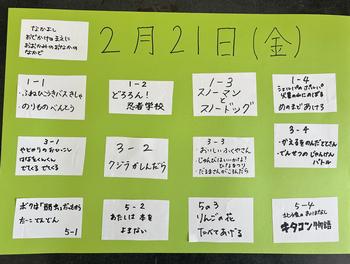 なかよし
おでかけのまえに
おおかみのおなかの
なかで
2月21日(金)
1-1
・ふねひこうきバスきしゃ
・のりものべんとう
1-2
どろろん!
忍者学校
1-3
スノーマン
と
スノードッグ
1-4
火山の中にのぼる
めのまどあけろ
3-1
・やどかりのおかいこし
はなをくんくん
でてくるでてくる
3-2
クジラがしんだら
3-3
・おいしいふくやさん
・じゃんけんはいいかな?
ひなまつり
・だるまさんがころんだら
3-4
・かえるをのんだととさん
・でんせつのじゃんけん
バトル
ボクは「弱虫」だったから
たーこてんてん
5-1
5-2
あたしは本を
よまない
5の3
りんごの花
たべてあげる
5-4
キタコン物語